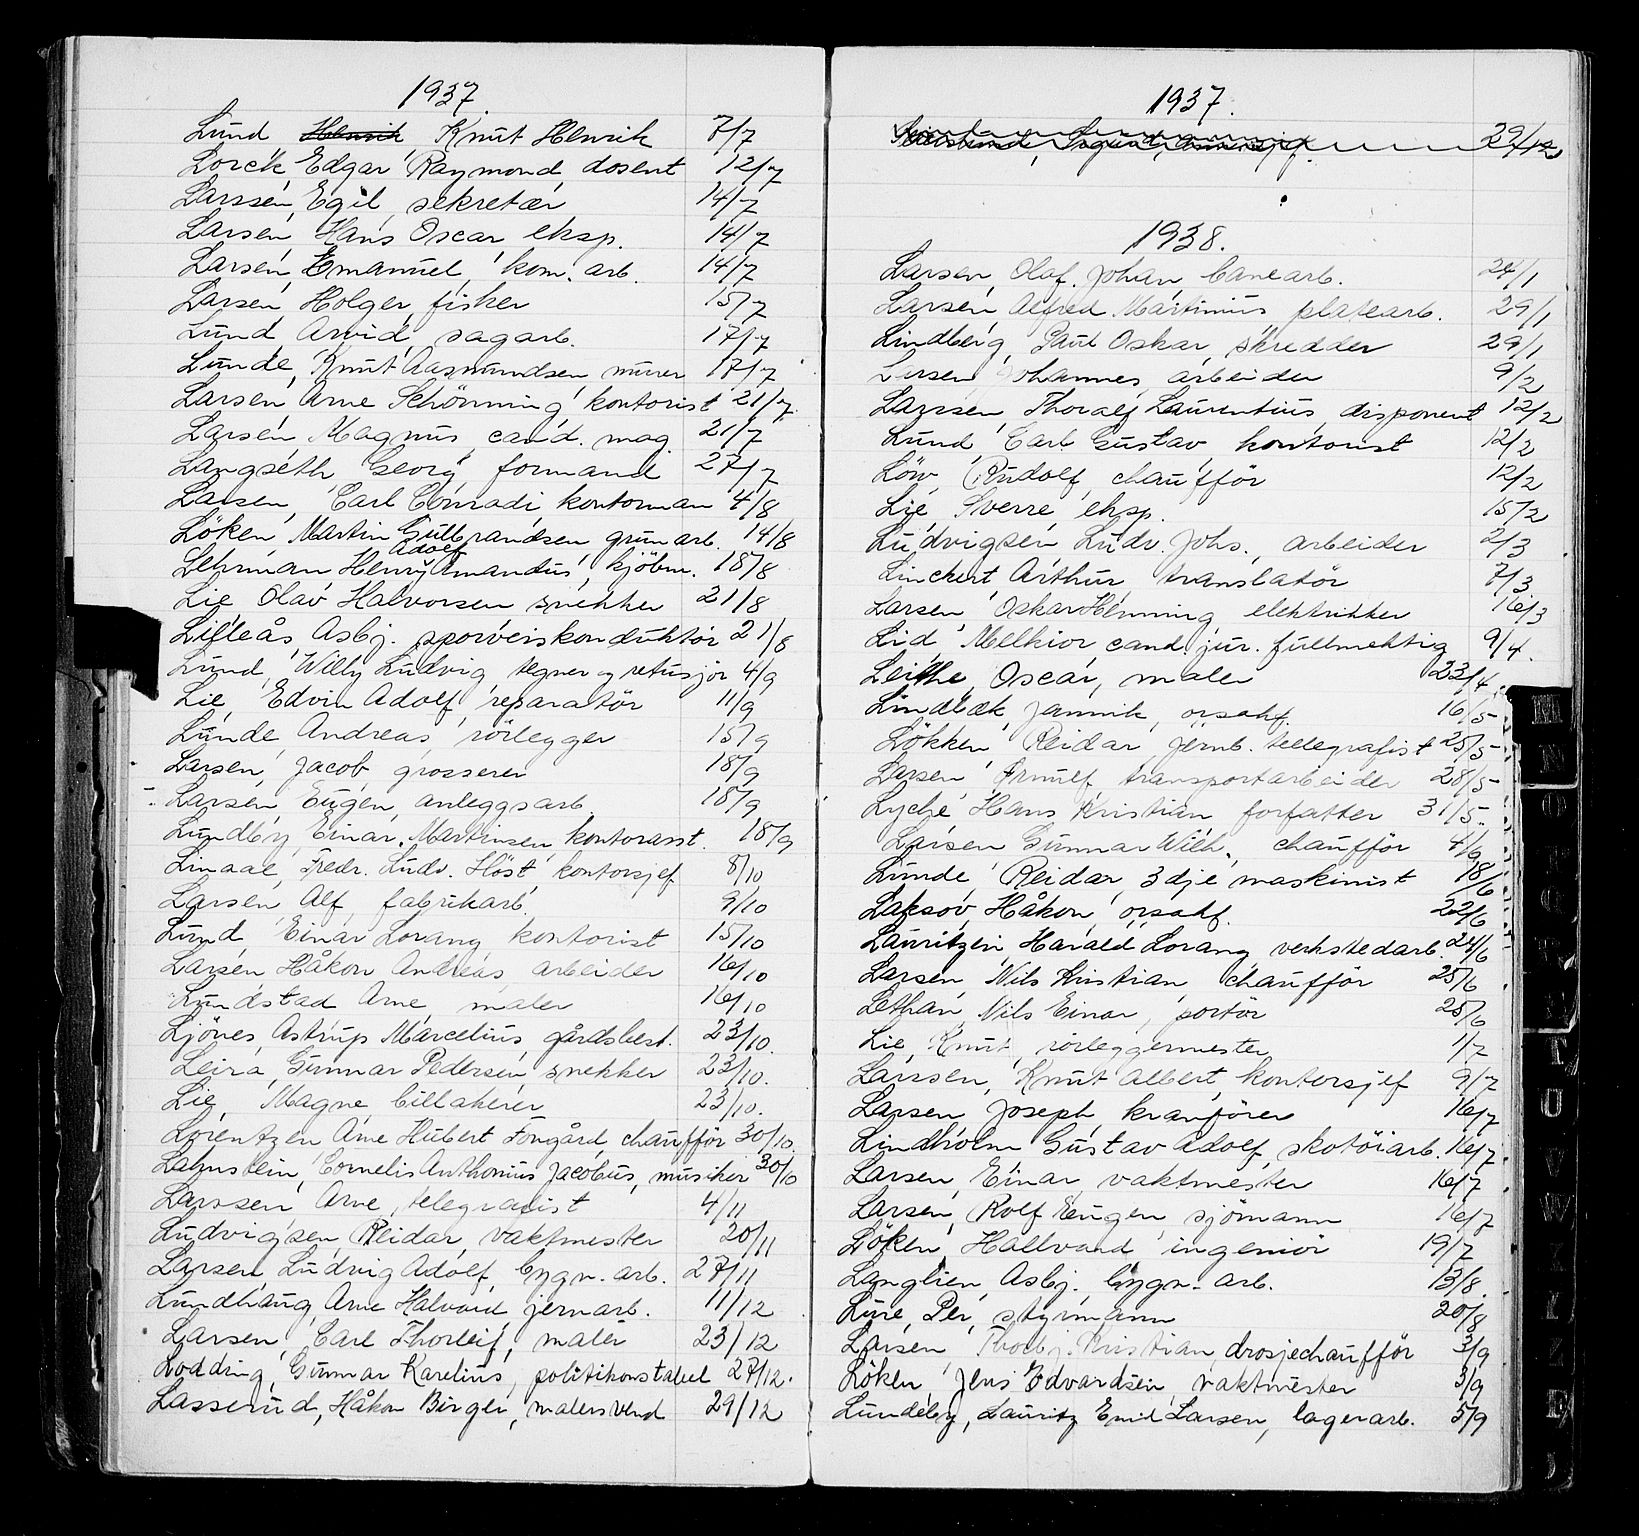 1937.
Lund Henrik, Knut Henrik 7/7
Lorck, Edgar Raymond, dosent 12/7
Larssen, Egil, sekretær 14/7
Larsen, Hans Oscar, eksp. 14/7
Larsen, Emanuel, kom. arb. 14/7
Larsen, Holger, fisker 15/7
Lund, Arvid, sagarb. 17/7
Lunde, Knut Aasmundsen, murer 17/7
Larsen, Arne Schönning, kontorist 21/7.
Larsen, Magnus, cand. mag. 21/7
Langseth, Georg, formand 27/7
Larsen, Carl Conradi, kontorman 4/8
Löken, Martin Gulbrandsen, grunarb. 14/8
Lehrman, Henry Adolf Amandus, kjöbm. 18/8
Lie, Olav Halvorsen, snekker 21/8
Lilleås, Asbj. sporveiskonduktör 21/8
Lund, Willy Ludvig, tegner og retusjör 4/9
Lie, Edvin Adolf, reparatör 11/9
Lunde, Andreas, rörlegger 15/9
Larsen, Jacob, grosserer 18/9
Larsen, Eugen, anleggsarb. 18/9
Lundby, Einar Martinsen, kontorasst. 18/9
Linaae, Fredr. Ludv. Höst, kontorsjef 8/10
Larsen, Alf, fabrikarb. 9/10
Lund, Einar Lorang, kontorist 15/10
Larsen, Håkon Andreas, arbeider 16/10
Lundstad, Arne, maler 16/10
Ljönes, Astrup Marcelius, gårdsbest. 23/10.
Leira, Gunnar Pedersen, snekker 23/10.
Lie, Magne, billakerer 23/10.
Lorentzen, Arne Hubert Fongård, chaufför 30/10.
Lahnstein, Cornelis Anthonius Jacobus, musiker 30/10
Larssen, Arne, telegrafist 4/11
Ludvigsen, Reidar, vaktmester 20/11
Larsen, Ludvig Adolf, bygn. arb. 27/11
Lundhaug, Arne Halvard, jernarb. 11/12
Larsen, Carl Thorleif, maler 23/12
Lodding, Gunnar Karelius, politikonstabel 27/12.
Lasserud, Håkon Birger, malersvend 29/12
1937.
29/12
1938.
Larsen, Olaf Johan, banearb. 24/1
Larsen, Alfred Martinius, platearb. 29/1
Lindberg, Paul Oskar, skredder 29/1
Larsen, Johannes, arbeider 9/2
Larssen, Thoralf Laurentius, disponent 12/2
Lund, Carl Gustav, kontorist 12/2
Löw, Rudolf, chaufför 12/2
Lie, Sverre, eksp. 15/2
Ludvigsen, Ludv. Johs., arbeider 2/3
Linckert, Arthur, translatör 7/3
Larsen, Oskar Henning, elektriker 16/3
Lid, Melkior, cand. jur. fullmektig 9/4.
Leithe, Oscar, maler 23/4.
Lindbæk, Jannik, o.r.sakf. 16/5
Lökken, Reidar, jernb. tellegrafist 25/5
Larsen, Arnulf, transportarbeider 28/5
Lyche, Hans Kristian, forfatter 31/5.
Larsen, Gunnar Wilh., chaufför 4/6
Lunde, Reidar, 3dje maskinist 18/6
Laksov, Håkon, o.r.sakf. 22/6
Lauritzen, Harald Lorang, verkstedarb. 24/6
Larsen, Nils Kristian, chaufför 25/6
Lethan, Nils Einar, portör 25/6
Lie, Knut, rörleggermester 1/7
Larssen, Knut Albert, kontorsjef 9/7
Larsen, Joseph, kranförer 16/7
Lindholm, Gustav Adolf, skotöiarb. 16/7.
Larsen, Einar, vaktmester 16/7
Larsen, Rolf Eugen, sjömann 16/7
Löken, Hallvard, ingeniör 19/7
Langlien, Asbj. bygn. arb. 13/8.
Lure, Per, styrmann 20/8
Larsen, Thorbj. Kristian, drosjechaufför 3/9
Löken, Jens Edvardsen, vaktmester 3/9
Lundeby, Lauritz Emil Larsen, lagerarb. 5/9